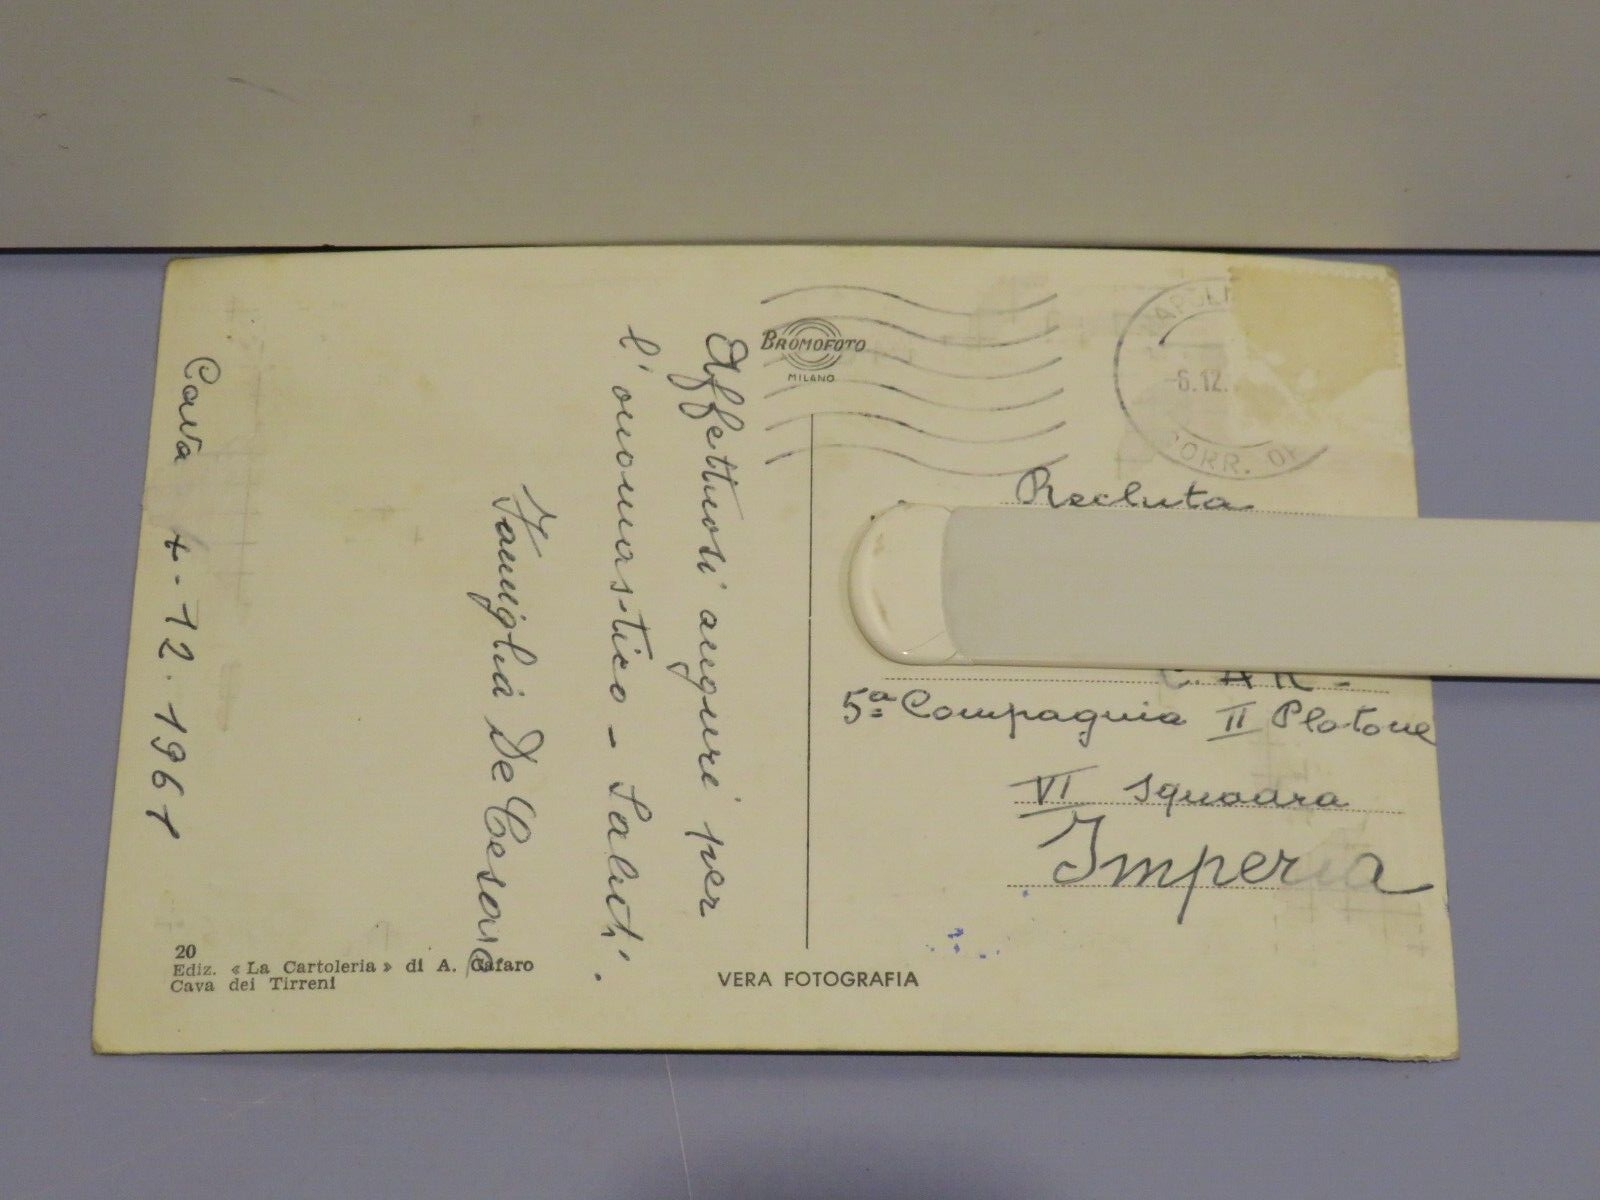 Cava 4-12.1961
Affettuosi auguri per
l'onomastico - Saluti.
Famiglia De Cesare
20
Ediz. « La Cartoleria » di A. Cafaro
Cava dei Tirreni
BROMOFOTO
MILANO
VERA FOTOGRAFIA
NAPOLI
-6.12.
CORR.
Recluta
C.A.R-
5ª Compagnia II Platone
VI Squadra
Imperia